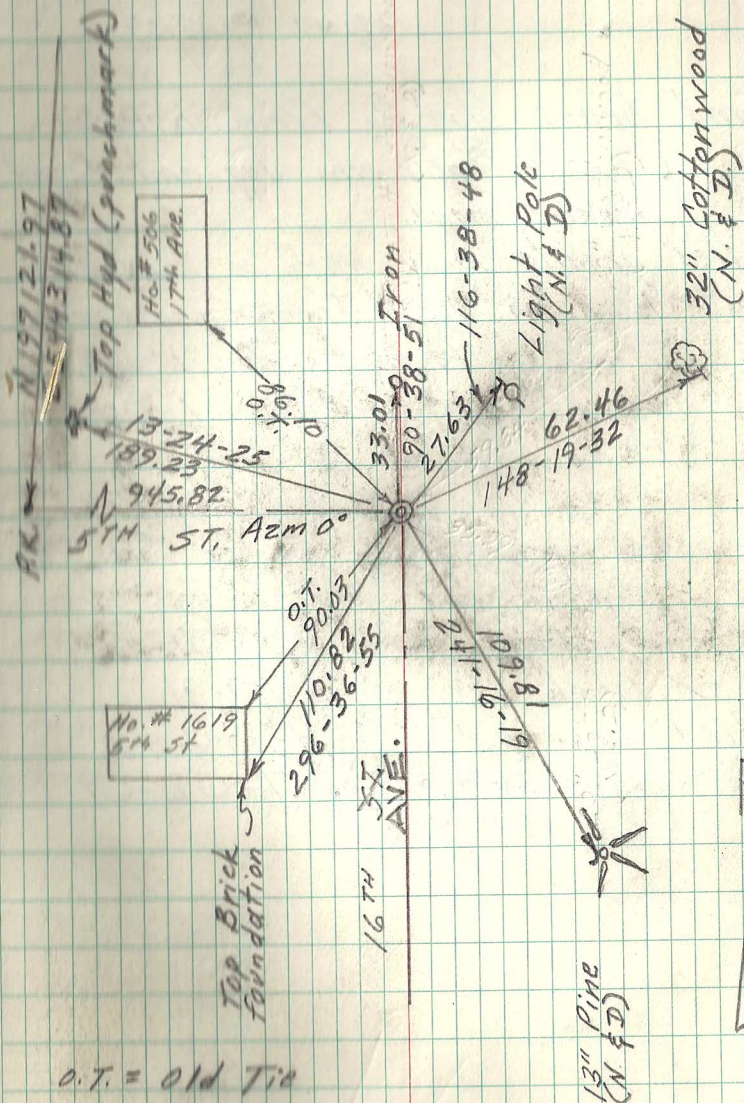 N 197121.97
Top Hyd (punchmark)
Ho # 506
17th Ave.
13-24-25
189.23
945.82
5TH ST.
Azm 0°
33.01
Iron
90-38-51
27.63
116-38-48
Light Pole
(N. & D)
62.46
148-19-32
32" Cottonwood
(N. & D.)
O.T.
90.03
110.82
296-36-55
Ho. # 1619
5TH St
Top Brick
foundation
16TH ST.
AVE.
241-16-19
109.81
13" Pine
(N. & D)
O.T. = Old Tie